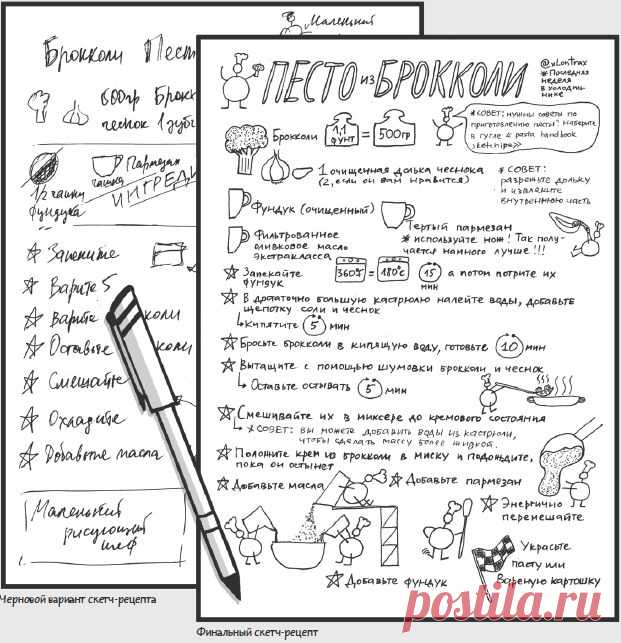 Маленький
Брокколи Песто
600гр Брокк
чеснок 1 зубч
1/2 чашки
фундука
чашка
Пармезан
ИНГРЕДИ
Запеките
Варите 5
Варите
коли
Оставьте
коли
Смешайте
Охладите
Добавьте масла
Маленький
рисующий
шеф
Черновой вариант скетч-рецепта
ПЕСТО ИЗ БРОККОЛИ
*Последняя
неделя
в холодиль-
нике
Брокколи
1,1
фунт
=
500гр
*СОВЕТ: нужны советы по
приготовлению пасты? Наберите
в гугле « pasta handbook
sketchnipe»
1 очищенная долька чеснока
(2, если он вам нравится)
*СОВЕТ:
разрежьте дольку
и извлеките
внутреннюю часть
Фундук (очищенный)
Тертый пармезан
*используйте нож! Так полу-
чается намного лучше!!!
Фильтрованное
оливковое масло
экстракласса
Запекайте
фундук
360° = 180°c
15
мин
а потом потрите их
В достаточно большую кастрюлю налейте воды, добавьте
щепотку соли и чеснок
Кипятите 5 мин
Бросьте брокколи в кипящую воду, готовьте 10 мин
Вытащите с помощью шумовки брокколи и чеснок
Оставьте остывать 5 мин
Смешивайте их в миксере до кремового состояния
*СОВЕТ: вы можете добавить воды из кастрюли,
чтобы сделать массу более жидкой.
Положите крем из брокколи в миску и подождите,
пока он остынет
Добавьте масла
Добавьте пармезан
Энергично
перемешайте
Добавьте фундук
Украсьте
пасту или
Вареную картошку
Финальный скетч-рецепт
postila.ru